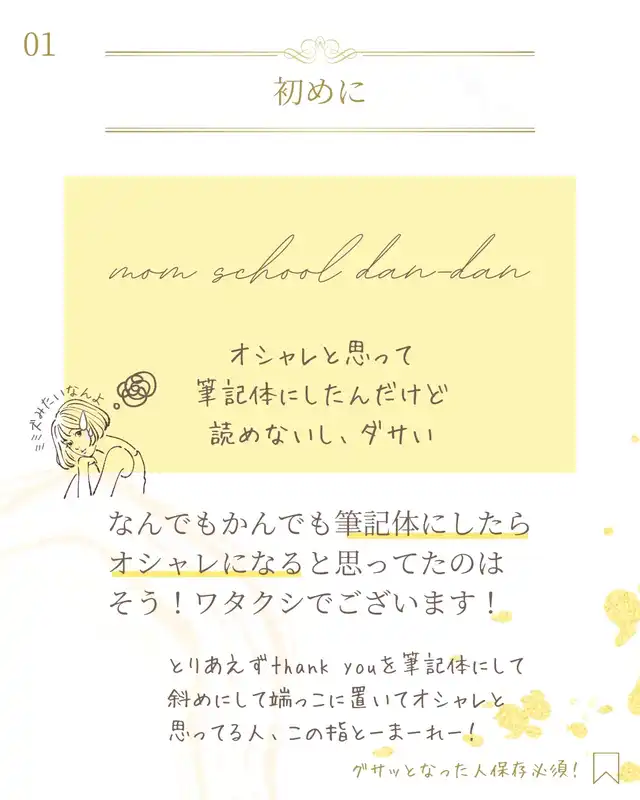 01
初めに
mom school dan-dan
オシャレと思って
筆記体にしたんだけど
読めないし、ダサい
ミミズみたいなんよ
なんでもかんでも筆記体にしたら
オシャレになると思ってたのは
そう！ワタクシでございます！
とりあえずthank youを筆記体にして
斜めにして端っこに置いてオシャレと
思ってる人、この指とーまーれー！
グサッとなった人保存必須！